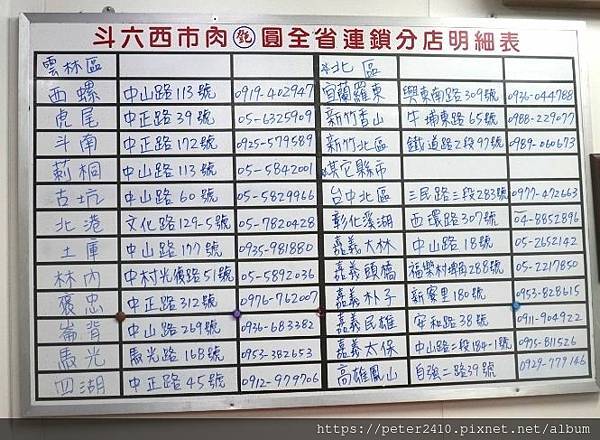 斗六西市肉圓全省連鎖分店明細表
雲林區 北區
西螺 中山路113號 0919-402947 宜蘭羅東 興東南路309號 0936-044788
虎尾 中正路39號 05-6325909 新竹香山 牛埔東路65號 0988-229077
斗南 中正路172號 0925-579589 新竹北區 鐵道路2段97號 0989-060673
莿桐 中山路113號 05-5842001 其它縣市
古坑 中山路60號 05-5829966 台中北區 三民路三段283號 0977-472663
北港 文化路129-5號 05-7820428 彰化溪湖 西環路307號 04-8852896
土庫 中山路177號 0935-981880 嘉義大林 中山路18號 05-2652142
林內 中村光復路51號 05-5892036 嘉義頭橋 福樂村埤角288號 05-2217850
褒忠 中正路312號 0976-762007 嘉義朴子 新寮里180號 0953-828615
崙背 中山路269號 0936-683382 嘉義民雄 安和路38號 0911-904922
馬光 馬光路168號 0953-382653 嘉義太保 中山路二段184-1號 0975-811526
四湖 中正路45號 0912-979706 高雄鳳山 自強二路39號 0929-779146
https://peter2410.pixnet.net/album